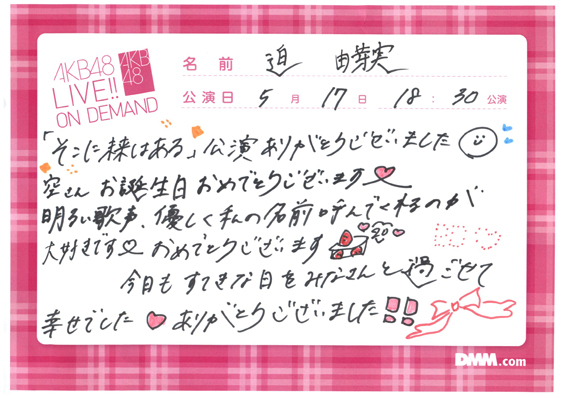 AKB48
LIVE!!
ON DEMAND
AKB
48
名前 迫 由芽実
公演日 5月17日 18:30公演
「そこに未来はある」公演ありがとうございました
空さん お誕生日おめでとうございます
明るい歌声、優しく私の名前呼んでくれるのが
大好きです おめでとうございます
今日もすてきな日をみなさんと過ごせて
幸せでした ありがとうございました!!
DMM.com